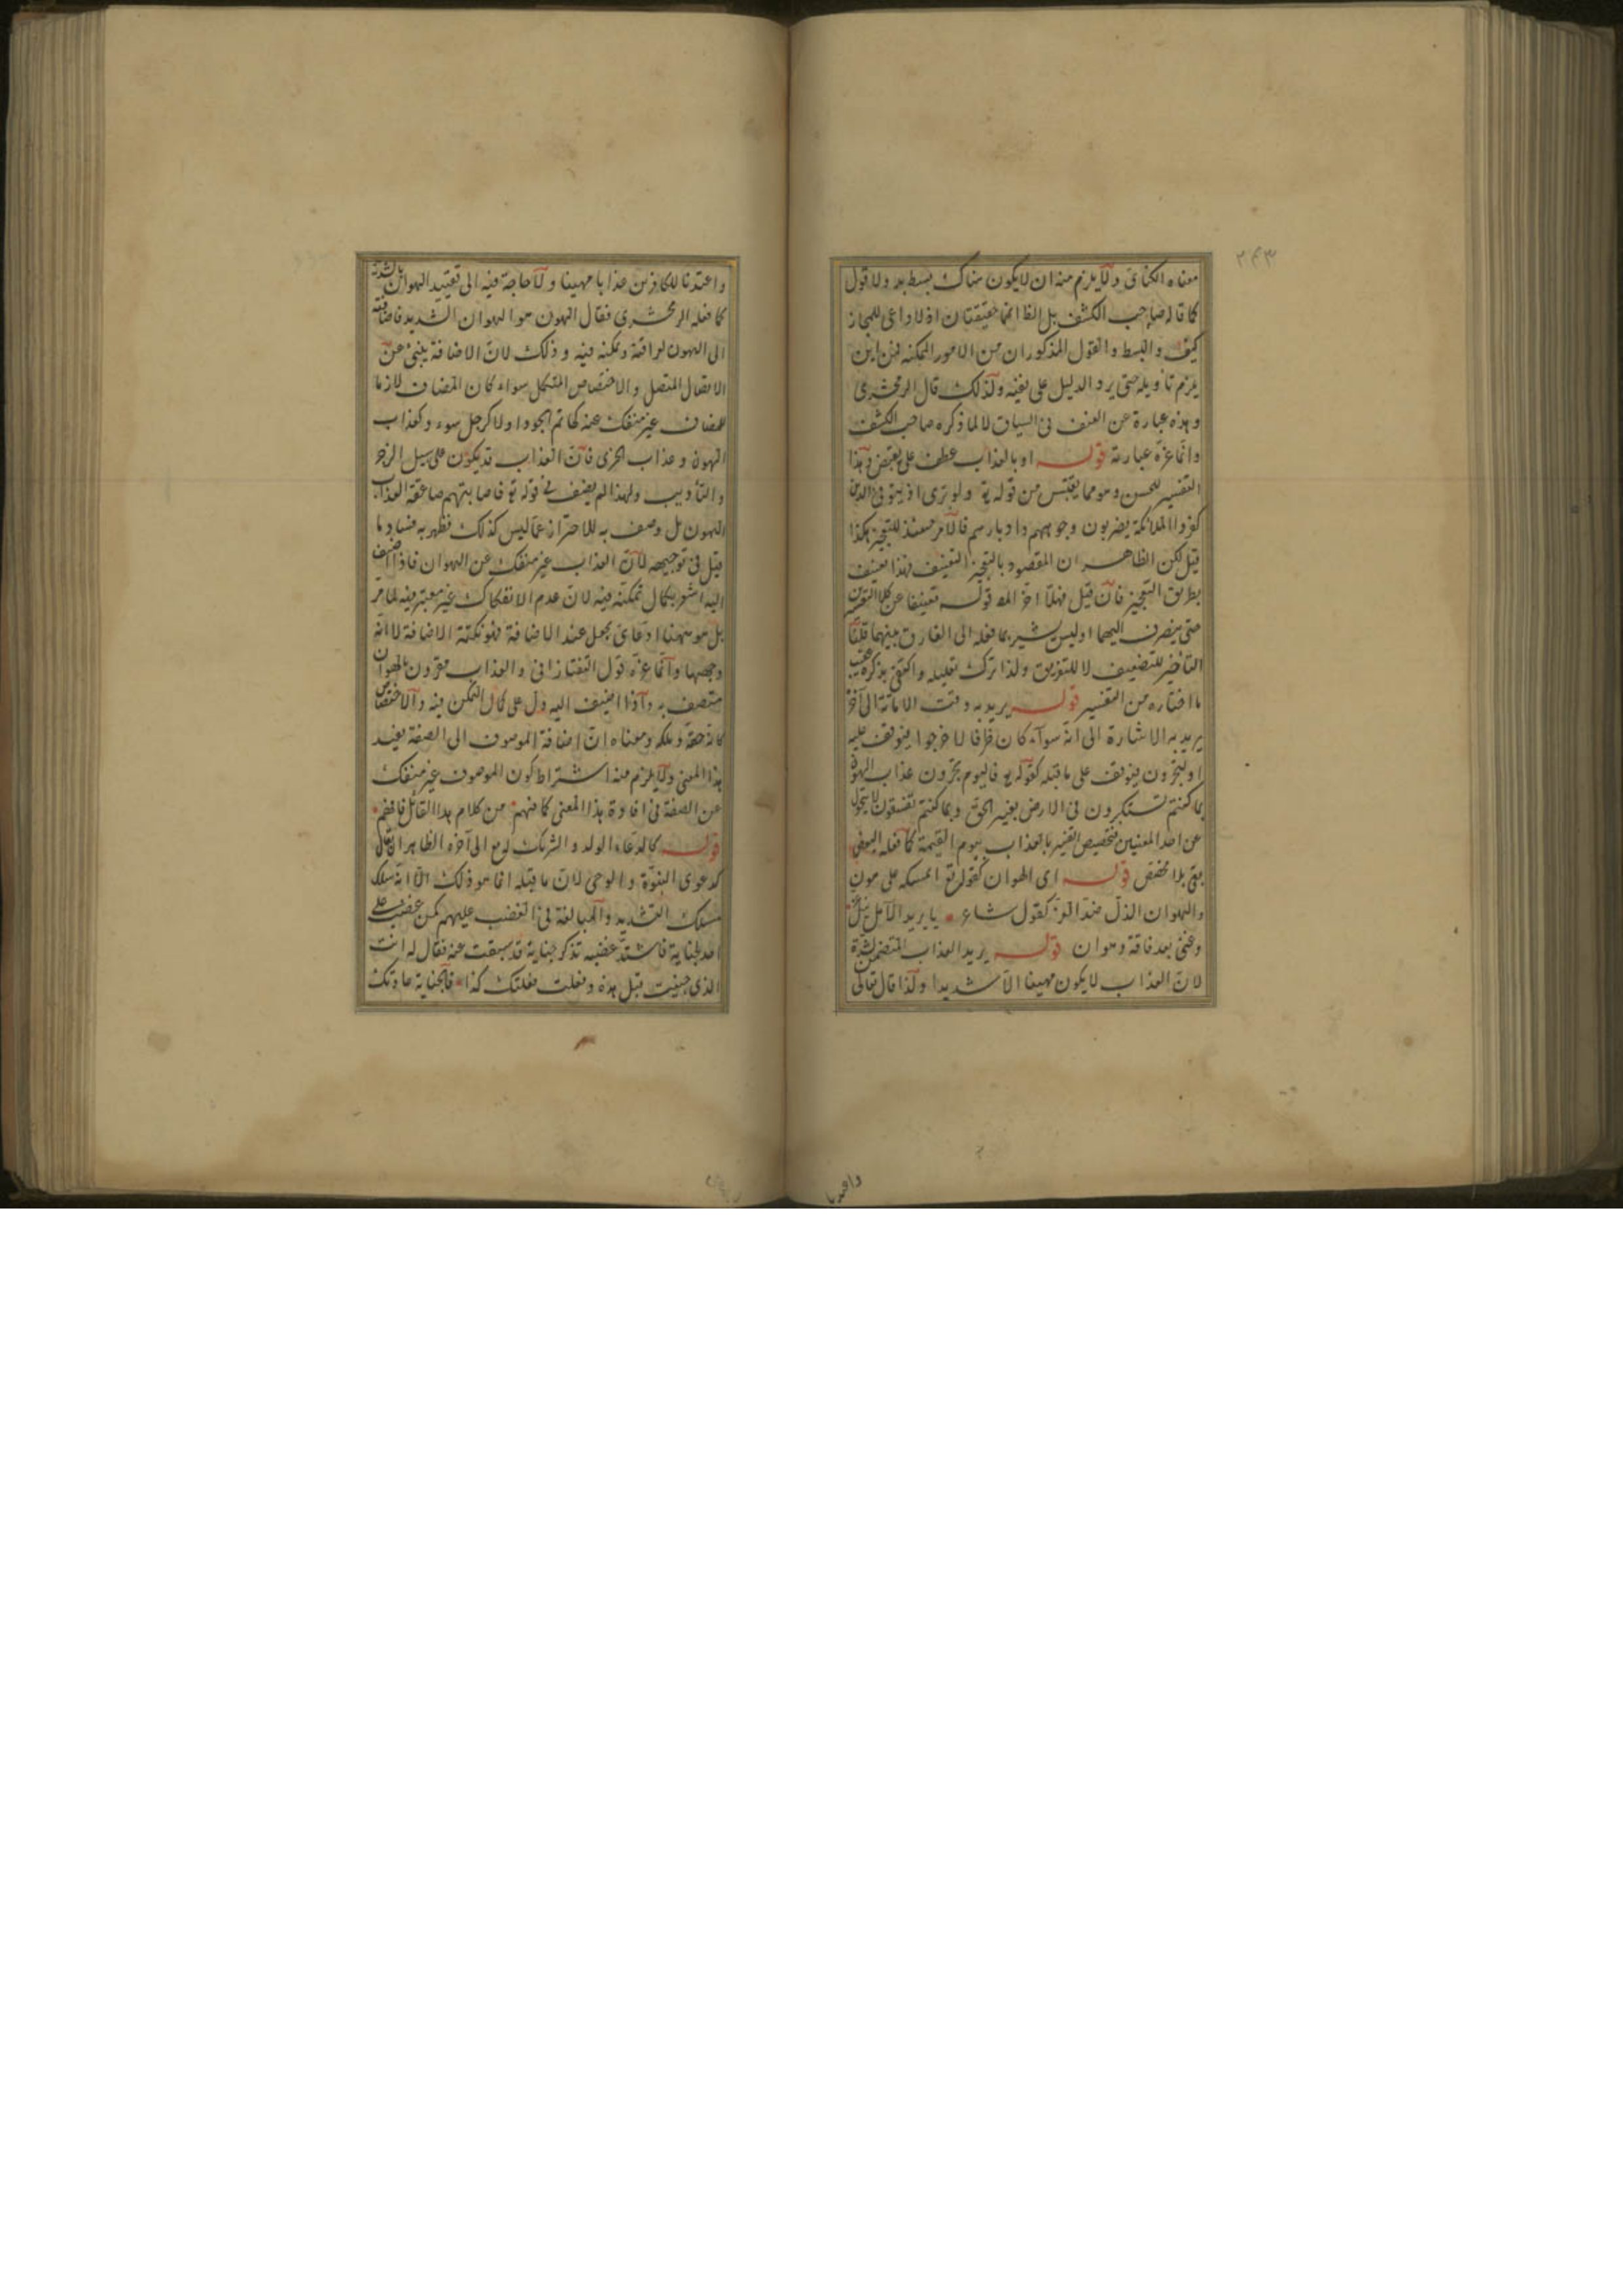 ٢٤٣
معناه الكنائى ولا يلزم منه ان لا يكون هناك بسط يد ولا قول
كما قاله صاحب الكشف بل الظ انهما حقيقتان اذ لا داعى للمجاز
كيف والبسط والقول المذكوران من الامور الممكنة فمن اين
يلزم تأويله حتى يرد الدليل على نفيه ولذلك قال الزمخشرى
وهذه عبارة عن العنف فى السياق لا لما ذكره صاحب الكشف
وانما غره عبارته قوله او بالعذاب عطف على بقبض وهذا
التفسير للحسن وهو مما يقتبس من قوله تع ولو ترى اذ يتوفى الذين
كفروا الملائكة يضربون وجوههم وادبارهم فالامر حينئذ للتعجيز هكذا
قيل لكن الظاهر ان المقصود بالتعجيز التعنيف فهذا تعنيف
بطريق التعجيز فان قيل فهلا اخر المص قوله تعنيفا عن كلا التفسيرين
حتى ينصرف اليهما اوليس يشير بما فعله الى الفارق بينهما قلنا
التأخير للتضعيف لا للتفريق ولذا ترك تعليله واكتفى بذكره عقيب
ما اختاره من التفسير قوله يريد به وقت الاماتة الى آخره
يريد به الاشارة الى انه سواء كان ظرفا لاخرجوا فيوقف عليه
او لتجزون فيوقف على ما قبله كقوله تع فاليوم تجزون عذاب الهون
بما كنتم تستكبرون فى الارض بغير الحق وبما كنتم تفسقون لا يتحول
عن احد المعنيين فتخصيص التفسير بالعذاب بيوم القيمة كما فعله البعض
يبقى بلا مخصص قوله اى الهوان كقوله تع ايمسكه على هون
والهوان الذل ضد العز كقول شاعر
وغنى بعد فاقة وهوان قوله يريد العذاب المتضمن لشدة
لان العذاب لا يكون مهينا الا شديدا ولذا قال تعالى
واعتدنا
واعتدنا للكافرين عذابا مهينا ولا حاجة فيه الى تقييد الهوان بالشدة
كما فعله الزمخشرى فقال الهون هو الهوان الشديد فاضافته
الى الهون لعراقته وتمكنه فيه وذلك لان الاضافة ينبئ عن
الاتصال المتصل والاختصاص المتكمل سواء كان المضاف لازما
للمضاف غير منفك عنه كحاتم الجود اولا كرجل سوء وكعذاب
الهون وعذاب الخزى فان العذاب قد يكون على سبيل الزجر
والتأديب ولهذا لم يضف فى قوله تع فاصابتهم صاعقة العذاب
الهون بل وصف به للاحتراز عما ليس كذلك فظهر به فساد ما
قيل فى توجيهه لان العذاب غير منفك عن الهوان فاذا اضيف
اليه اشعر بكمال تمكنه فيه لان عدم الانفكاك غير معتبر فيه لما مر
بل هو ههنا ادعائى يجعل عند الاضافة فهو نكتة الاضافة لا انه
وجهها وانما غره قول التفتازانى والعذاب مقرون بالهوان
متصف به واذا اضيف اليه دل على كمال التمكن فيه والاختصاص
كانه حقه وملكه ومعناه ان اضافة الموصوف الى الصفة يفيد
هذا المعنى ولا يلزم منه اشتراط كون الموصوف غير منفك
عن الصفة فى افادة هذا المعنى كما فهم من كلام هذا القائل فافهم
قوله كادعاء الولد والشريك له مع الى آخره الظاهر ان يقال
كدعوى النبوة والوحى لان ما قبله انما هو ذلك الا انه سلك
مسلك التشديد والمبالغة فى الغضب عليهم كمن غضب على
احد بجناية فاشتد غضبه تذكر جناية قد سبقت عنه فقال له انت
الذى جنيت قبل هذه وفعلت فعلتك كذا فالجناية عادتك